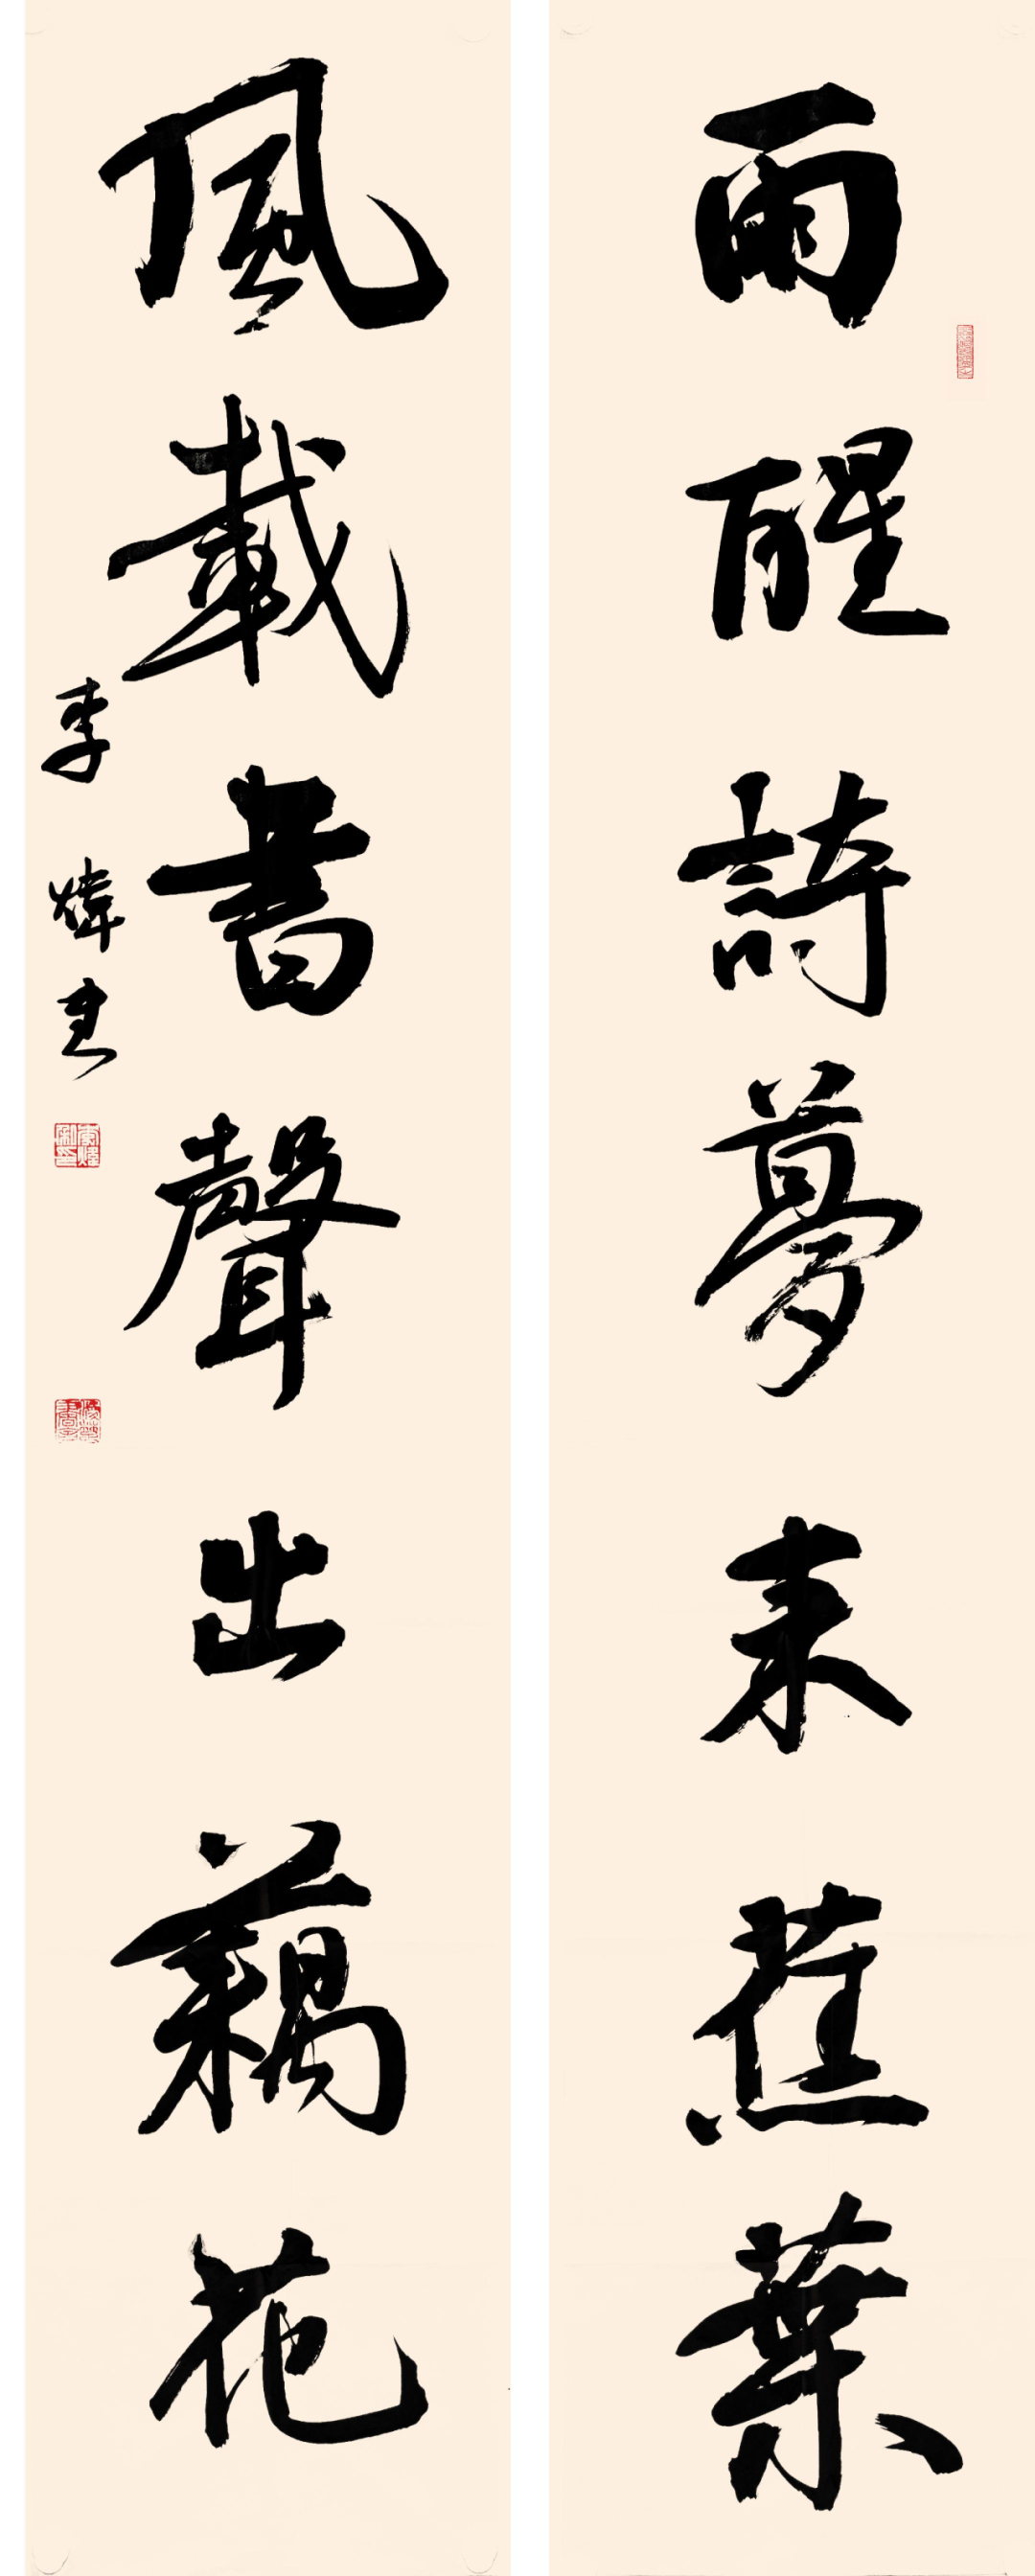 雨醒詩夢来蕉葉
風載書聲出藕花
李煒書